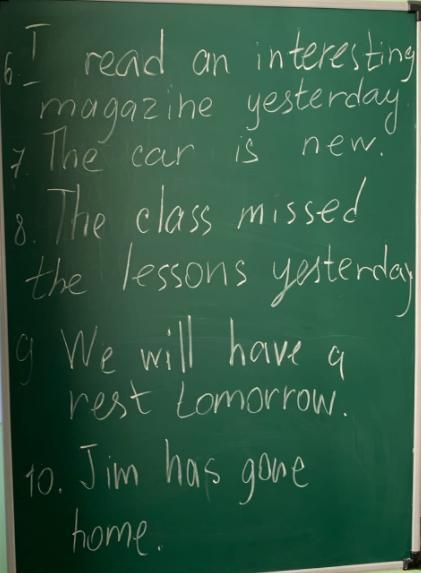 6. I read an interesting
magazine yesterday.
7. The car is new.
8. The class missed
the lessons yesterday
9 We will have a
rest tomorrow.
10. Jim has gone
home.